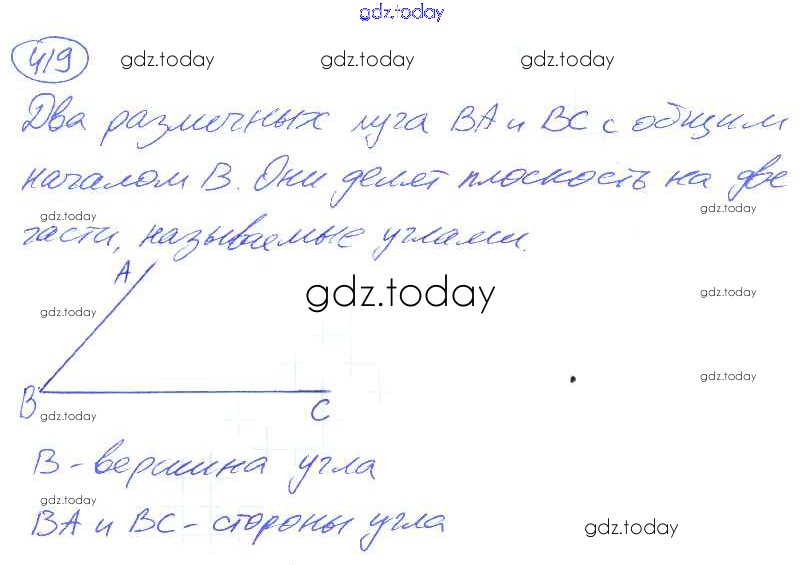 gdz.today
419 gdz.today gdz.today gdz.today
Два различных луча BA и BC с общим
началом B. Они делят плоскость на две
gdz.today gdz.today
части, называемые углами.
A
gdz.today gdz.today
gdz.today
gdz.today
B C
gdz.today
B - вершина угла
gdz.today
BA и BC - стороны угла
gdz.today